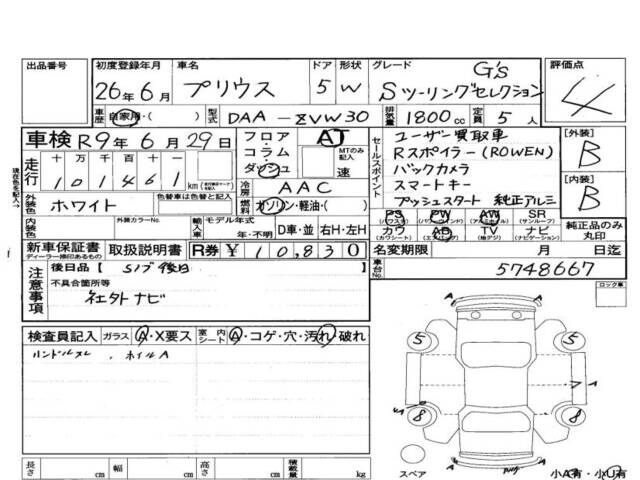 出品番号
初度登録年月
26年6月
車名
プリウス
ドア
5
形状
W
グレード
G's
Sツーリングセレクション
評価点
4
車歴
自家用・( )
型式
DAA-ZVW30
排気量
1800cc
定員
5人
車検 R9年6月29日
走行
十 万 千 百 十 一
101461
km
フロア
コラム
ダッシュ
AT
MTのみ記入
速
冷房
AAC
燃料
ガソリン・軽油・( )
現在色を記入→
外装色
ホワイト
色替車は色替と記入
内装色
外装カラーNo.
輸入車
モデル年式
年・不明
D車・並
右H・左H
セールスポイント
ユーザー買取車
Rスポイラー(ROWEN)
バックカメラ
スマートキー
プッシュスタート 純正アルミ
[外装]
B
[内装]
B
PS
(パワステ)
PW
(パワーウインド)
AW
(アルミホイール)
SR
(サンルーフ)
カワ
(カワシート)
AB
(エアバッグ)
TV
(地デジ)
ナビ
(ナビゲーション)
純正品のみ丸印
新車保証書
ディーラー捺印あるもの
取扱説明書
R券
¥10,830
名変期限
月 日迄
車台No.
5748667
注意事項
後日品【Sノブ後日
不具合箇所等
社外ナビ
ロック車
検査員記入
ガラス
A・X要ス
室内シート
A・コゲ・穴・汚れ・破れ
ハンドルスレ、ホイルA
5
5
8
8
A
A
A
A
A
スペア
小A有・小U有
長さ
cm
幅
cm
高さ
cm
積載量
kg